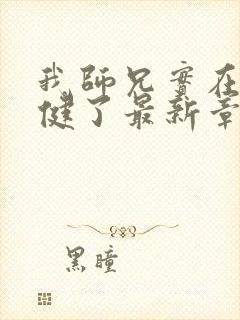 我師兄實在
健了最新章
黑瞳